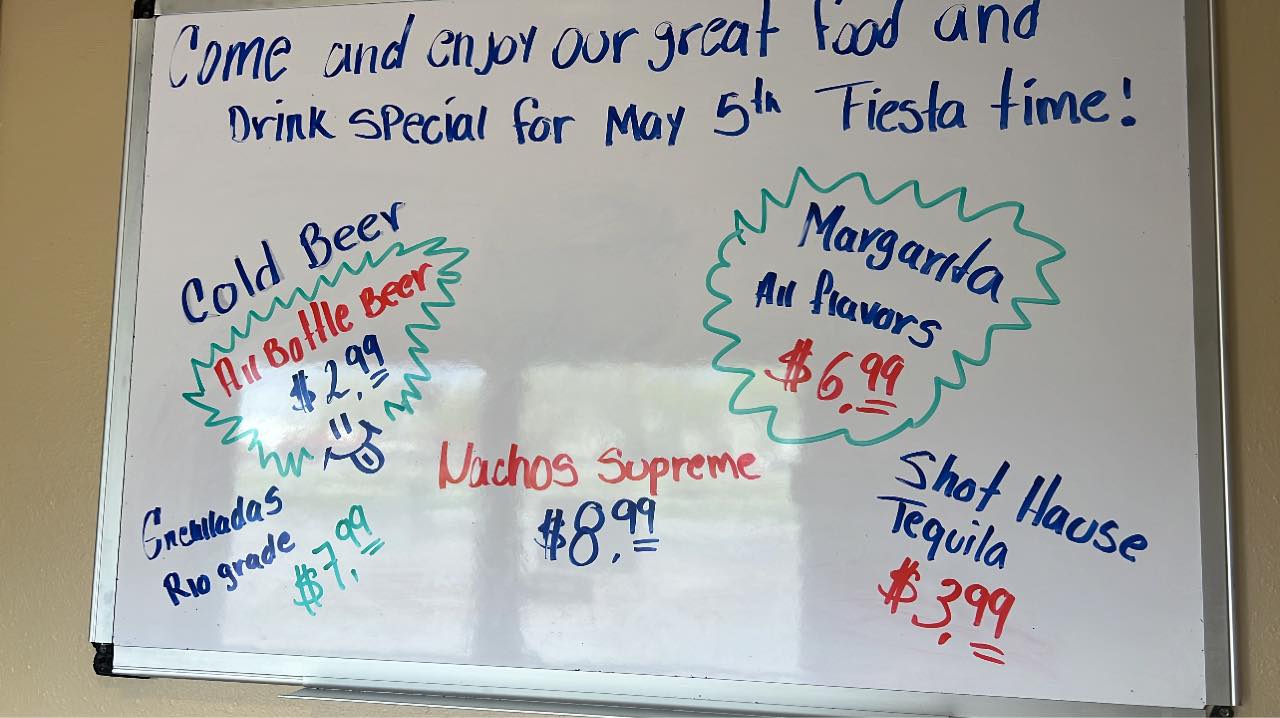 Come and enjoy our great food and
Drink special for May 5th Fiesta time!
Cold Beer
All Bottle Beer
$2.99
Margarita
All flavors
$6.99
Nachos Supreme
$8.99
Enchiladas
Rio grade
$7.99
Shot Hause
Tequila
$3.99